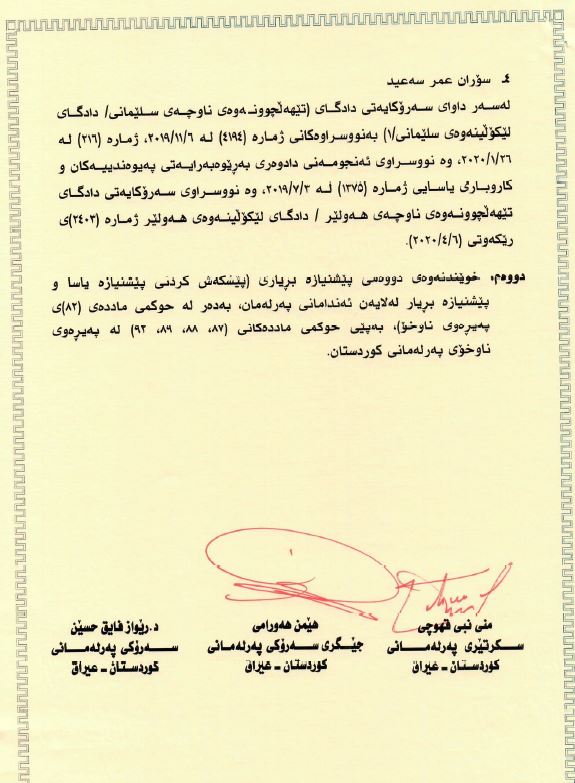 ٤. سۆران عمر سەعید
لەسەر داوای سەرۆکایەتی دادگای (تێهەڵچوونەوەی ناوچەی سلێمانی/ دادگای
لێکۆڵینەوەی سلێمانی/١) بەنووسراوەکانی ژمارە (٤١٩٤) لە ٢٠١٩/١١/٦، ژمارە (٢١٦) لە
٢٠٢٠/١/٢٦، وە نووسراوی ئەنجومەنی دادوەری بەڕێوەبەرایەتی پەیوەندییەکان و
کاروباری یاسایی ژمارە (١٣٧٥) لە ٢٠١٩/٧/٣، وە نووسراوی سەرۆکایەتی دادگای
تێهەڵچوونەوەی ناوچەی هەولێر / دادگای لێکۆڵینەوەی هەولێر ژمارە (٢٤٠٣)ی
رێکەوتی (٢٠٢٠/٤/٦).
دووەم. خوێندنەوەی دووەمی پێشنیازە بڕیاری (پێشکەش کردنی پێشنیازە یاسا و
پێشنیازە بڕیار لەلایەن ئەندامانی پەرلەمان، بەدەر لە حوکمی ماددەی (٨٢)ی
پەیڕەوی ناوخۆ)، بەپێی حوکمی ماددەکانی (٨٧، ٨٨، ٨٩، ٩٣) لە پەیڕەوی
ناوخۆی پەرلەمانی کوردستان.
منی نبی قهوچی
سکرتێری پەرلەمانی
کوردستان – عێراق
هێمن هەورامی
جێگری سەرۆکی پەرلەمانی
کوردستان – عێراق
د.رێواز فایق حسێن
سەرۆکی پەرلەمانی
کوردستان – عێراق